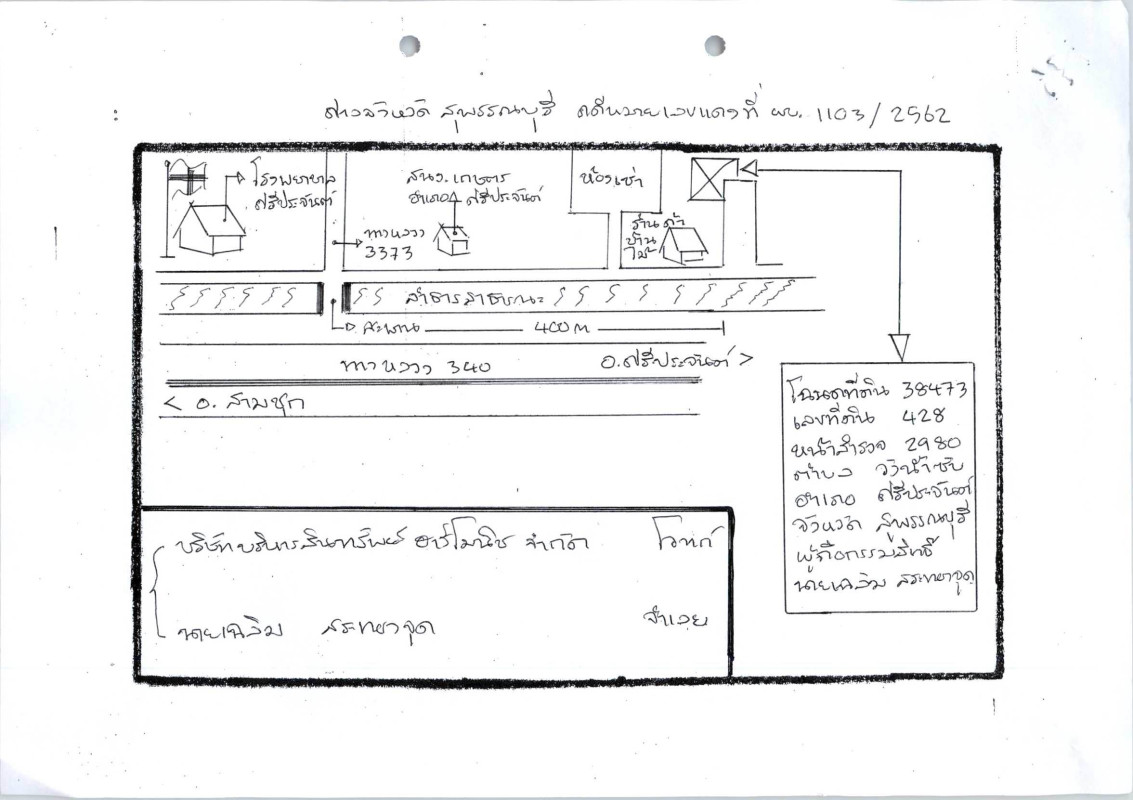 ศาลจังหวัด สุพรรณบุรี คดีหมายเลขแดงที่ ผบ. 1103/2562
โรงพยาบาล
ศรีประจันต์
สนง. เกษตร
อำเภอ ศรีประจันต์
ห้องเช่า
ทางหลวง
3373
ร้านค้า
บ้าน
ไม้
ลำธารสาธารณะ
สะพาน 400 m
ทางหลวง 340
อ.ศรีประจันต์ >
< อ. สามชุก
โฉนดที่ดิน 38473
เลขที่ดิน 428
หน้าสำรวจ 2980
ตำบล วังน้ำซับ
อำเภอ ศรีประจันต์
จังหวัด สุพรรณบุรี
ผู้ถือกรรมสิทธิ์
นายเฉลิม
บริษัทบริหารสินทรัพย์ ฮาร์โมนิช จำกัด โจทก์
นายเฉลิม จำเลย